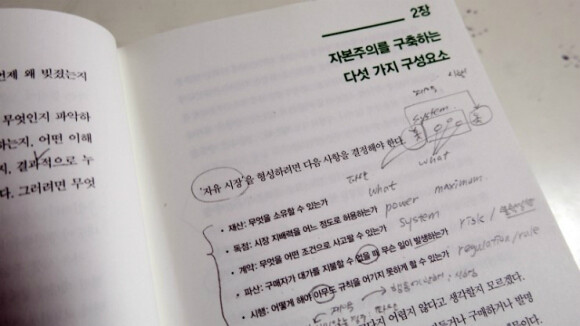 언제 왜 빚졌는지
무엇인지 파악하
하는지, 어떤 이해
지, 결과적으로 누
다. 그러려면 무엇
2장
자본주의를 구축하는
다섯 가지 구성요소
system
'자유 시장'을 형성하려면 다음 사항을 결정해야 한다.
what
what
• 재산: 무엇을 소유할 수 있는가
power maximum
• 독점: 시장 지배력을 어느 정도로 허용하는가
system
• 계약: 무엇을 어떤 조건으로 사고팔 수 있는가
risk /
• 파산: 구매자가 대가를 지불할 수 없을 때 무슨 일이 발생하는가
regulation/rule
• 시행: 어떻게 해야 아무도 규칙을 어기지 못하게 할 수 있는가
다지 어렵지 않다고 생각할지 모르겠다.
구매하거나 발명